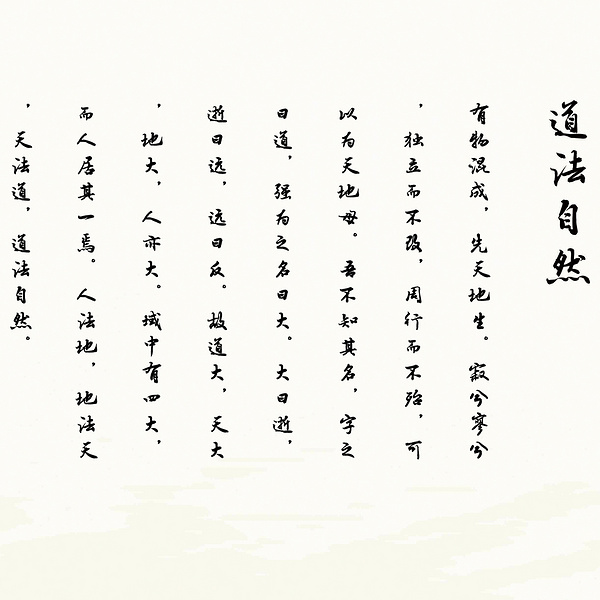 道法自然
有物混成，先天地生。寂兮寥兮
，独立而不改，周行而不殆，可
以为天地母。吾不知其名，字之
曰道，强为之名曰大。大曰逝，
逝曰远，远曰反。故道大，天大
，地大，人亦大。域中有四大，
而人居其一焉。人法地，地法天
，天法道，道法自然。